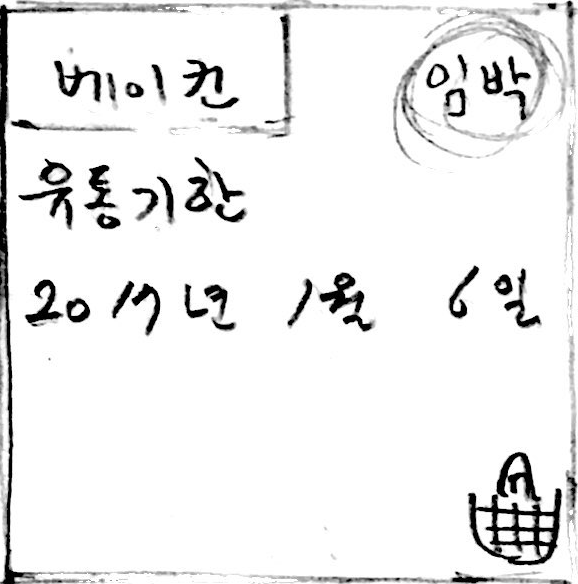 베이컨
임박
유통기한
2017년 1월 6일